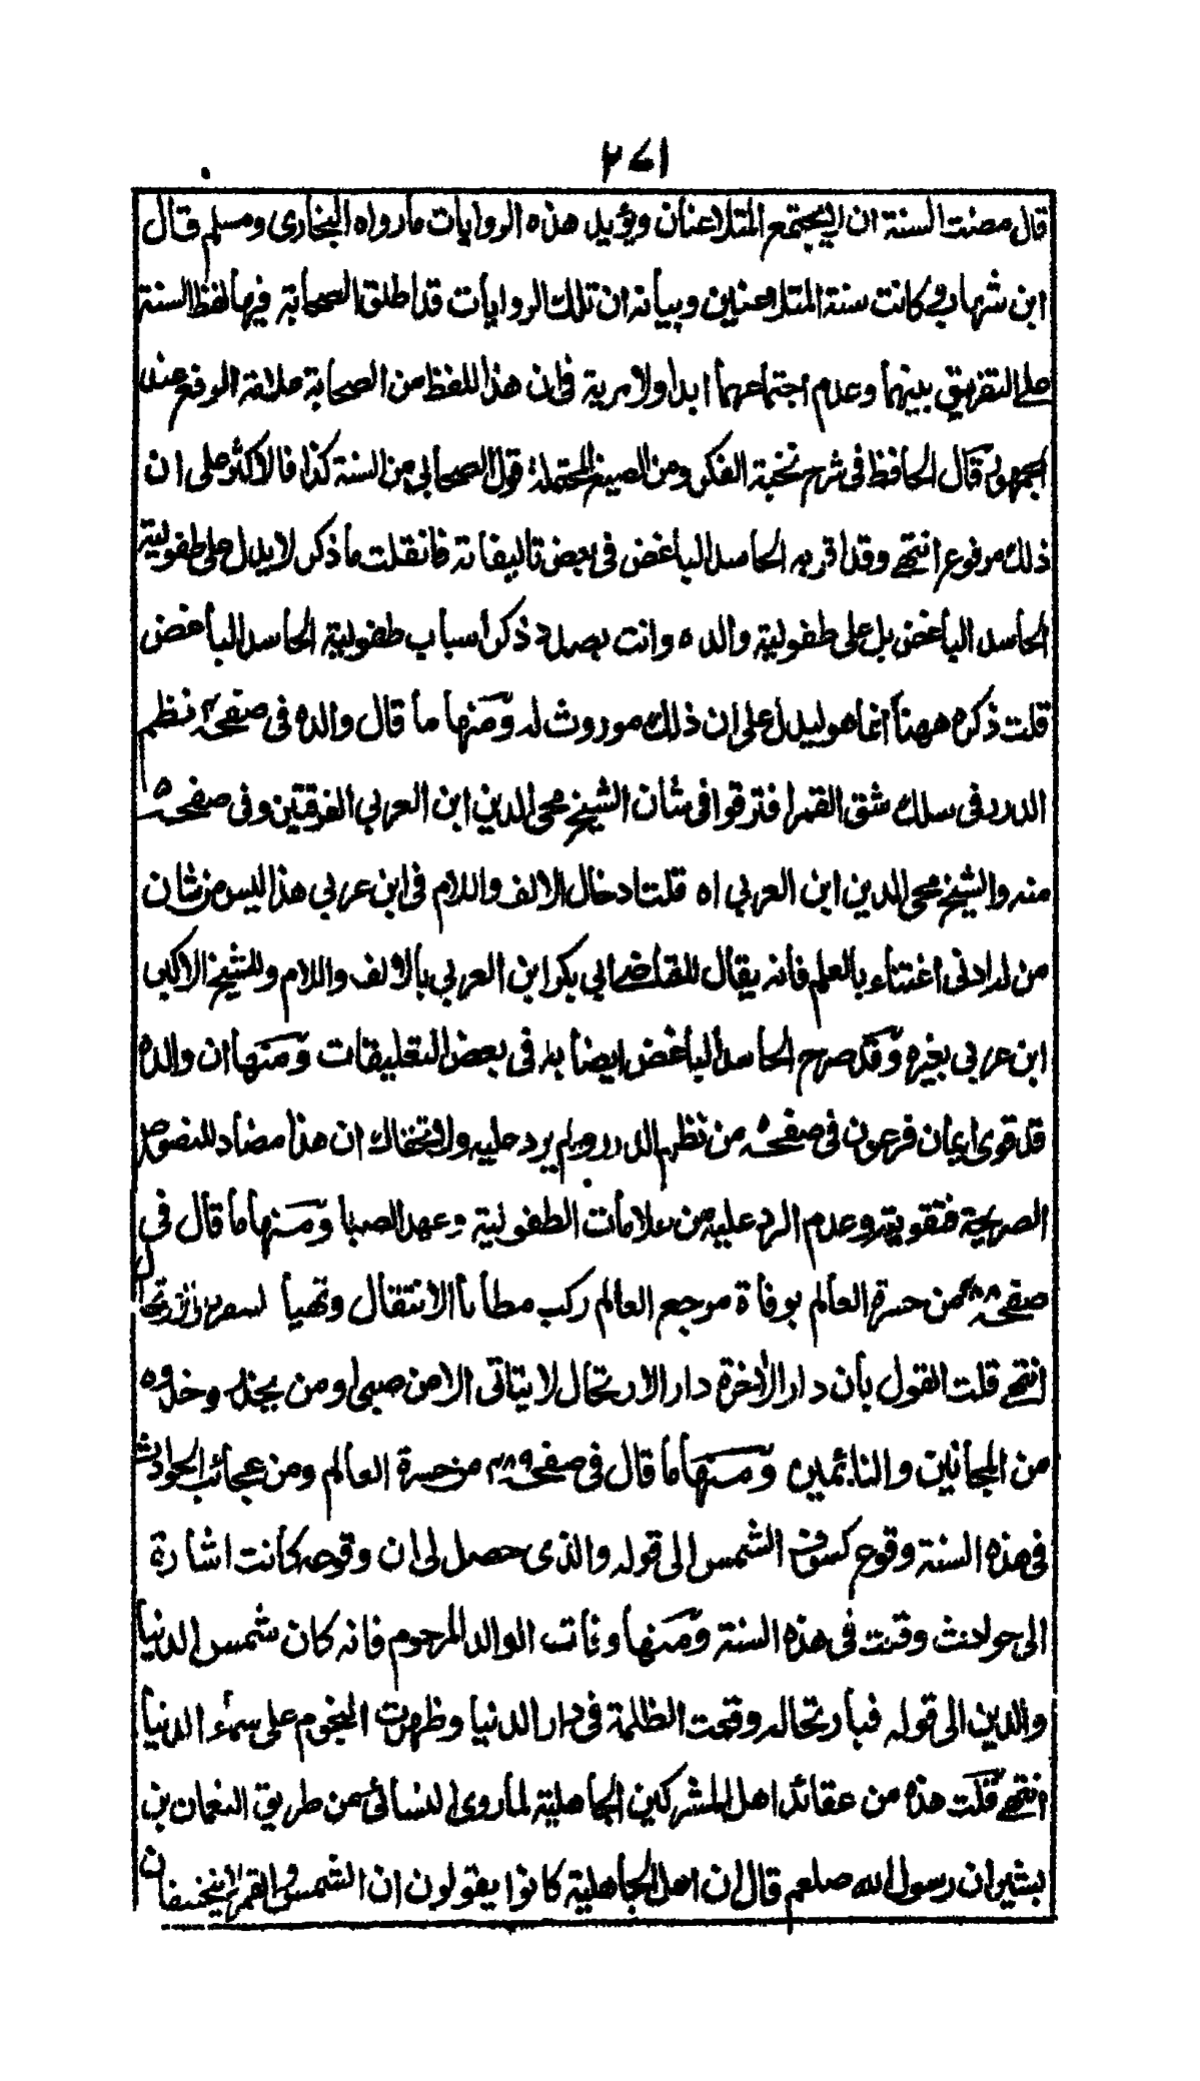 ٢٧١
قال مضت السنة ان لا يجتمع المتلاعنان ويؤيد هذه الروايات ما رواه البخارى ومسلم قال
ابن شهاب فكانت سنة المتلاعنين وبيانه ان تلك الروايات قد اطلق الصحابة فيها لفظ السنة
على التفريق بينهما وعدم اجتماعهما ابدا ولا مرية فى ان هذا اللفظ من الصحابة علامة الرفع عند
الجمهور قال الحافظ فى شرح نخبة الفكر ومن الصيغ المحتملة قول الصحابي من السنة كذا فالاكثر على ان
ذلك مرفوع انتهى وقد اقر به الحاسد الباغض فى بعض تاليفاته فان قلت ما ذكر لا يدل على طفولية
الحاسد الباغض بل على طفولية والده وانت بصدد ذكر أسباب طفولية الحاسد الباغض
قلت ذكره ههنا انما هو ليدل على ان ذلك موروث له ومنها ما قال والده فى صفحه ٢ نظم
الدرر فى سلك شق القمر افترقوا فى شان الشيخ محى الدين ابن العربي الفرقتين وفى صفحه ٥
منه والشيخ محى الدين ابن العربي اه قلت ادخال الالف واللام فى ابن عربي هذا ليس من شان
من له ادنى اغتناء بالعلم فانه يقال للقاضى ابي بكر ابن العربي بالالف واللام وللشيخ الاكبر
ابن عربي بغيره وقد صرح الحاسد الباغض ايضا به فى بعض التعليقات ومنها ان والده
قد قوى ايمان فرعون فى صفحه ٥ من نظم الدرر ولم يرد عليه ولا يخفاك ان هذا مضاد للنصوص
الصريحة فتقويته وعدم الرد عليه من علامات الطفولية وعهد الصبا ومنها ما قال فى
صفحه ٨٨ من حسرة العالم بوفاة مرجع العالم ركب مطايا الانتقال وتهيأ لسفر دار الارتحال
انتهى قلت القول بأن دار الأخرة دار الارتحال لا يتاتى الا من صبى او من يحذو حذوه
من المجانين والنائمين ومنها ما قال فى صفحه ٨٩ من حسرة العالم ومن عجائب الحوادث
فى هذه السنة وقوع كسوف الشمس الى قوله والذى حصل لى ان وقوعه كانت اشارة
الى حوادث وقعت فى هذه السنة ومنها وفات الوالد المرحوم فانه كان شمس الدنيا
والدين الى قوله فبارتحاله وقعت الظلمة فى دار الدنيا وظهرت النجوم على سماء الدنيا
انتهى قلت هذه من عقائد اهل المشركين الجاهلية لما روى النسائى من طريق النعمان بن
بشير ان رسول الله صلعم قال ان اهل الجاهلية كانوا يقولون ان الشمس والقمر لا ينخسفان